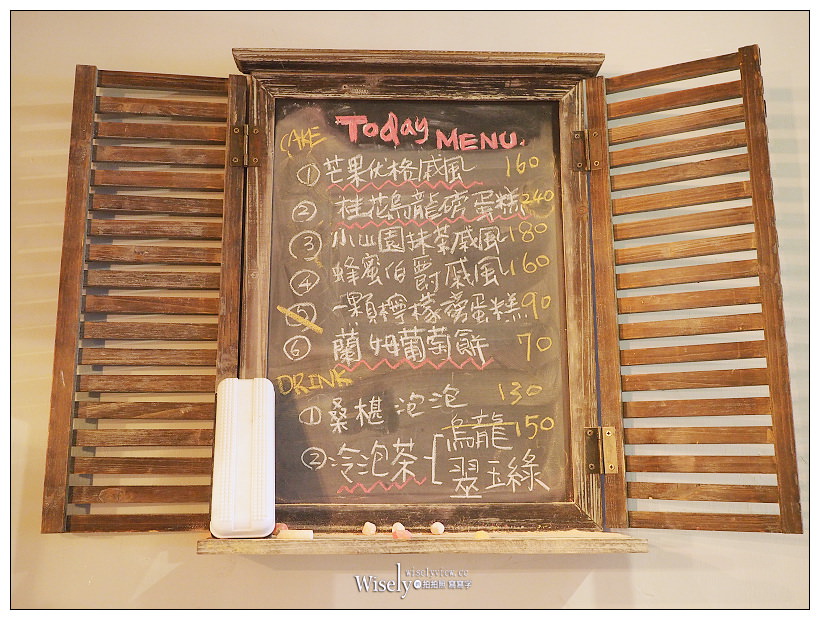 Today MENU.
CAKE
① 芒果优格戚風 160
② 桂花烏龍磅蛋糕 240
③ 小山園抹茶戚風 180
④ 蜂蜜伯爵戚風 160
⑤ 一顆檸檬磅蛋糕 90
⑥ 蘭姆葡萄餅 70
DRINK
① 桑椹泡泡 130
② 冷泡茶 烏龍 150
翠玉綠
wiselyview.cc
Wisely 拍拍照 寫寫字